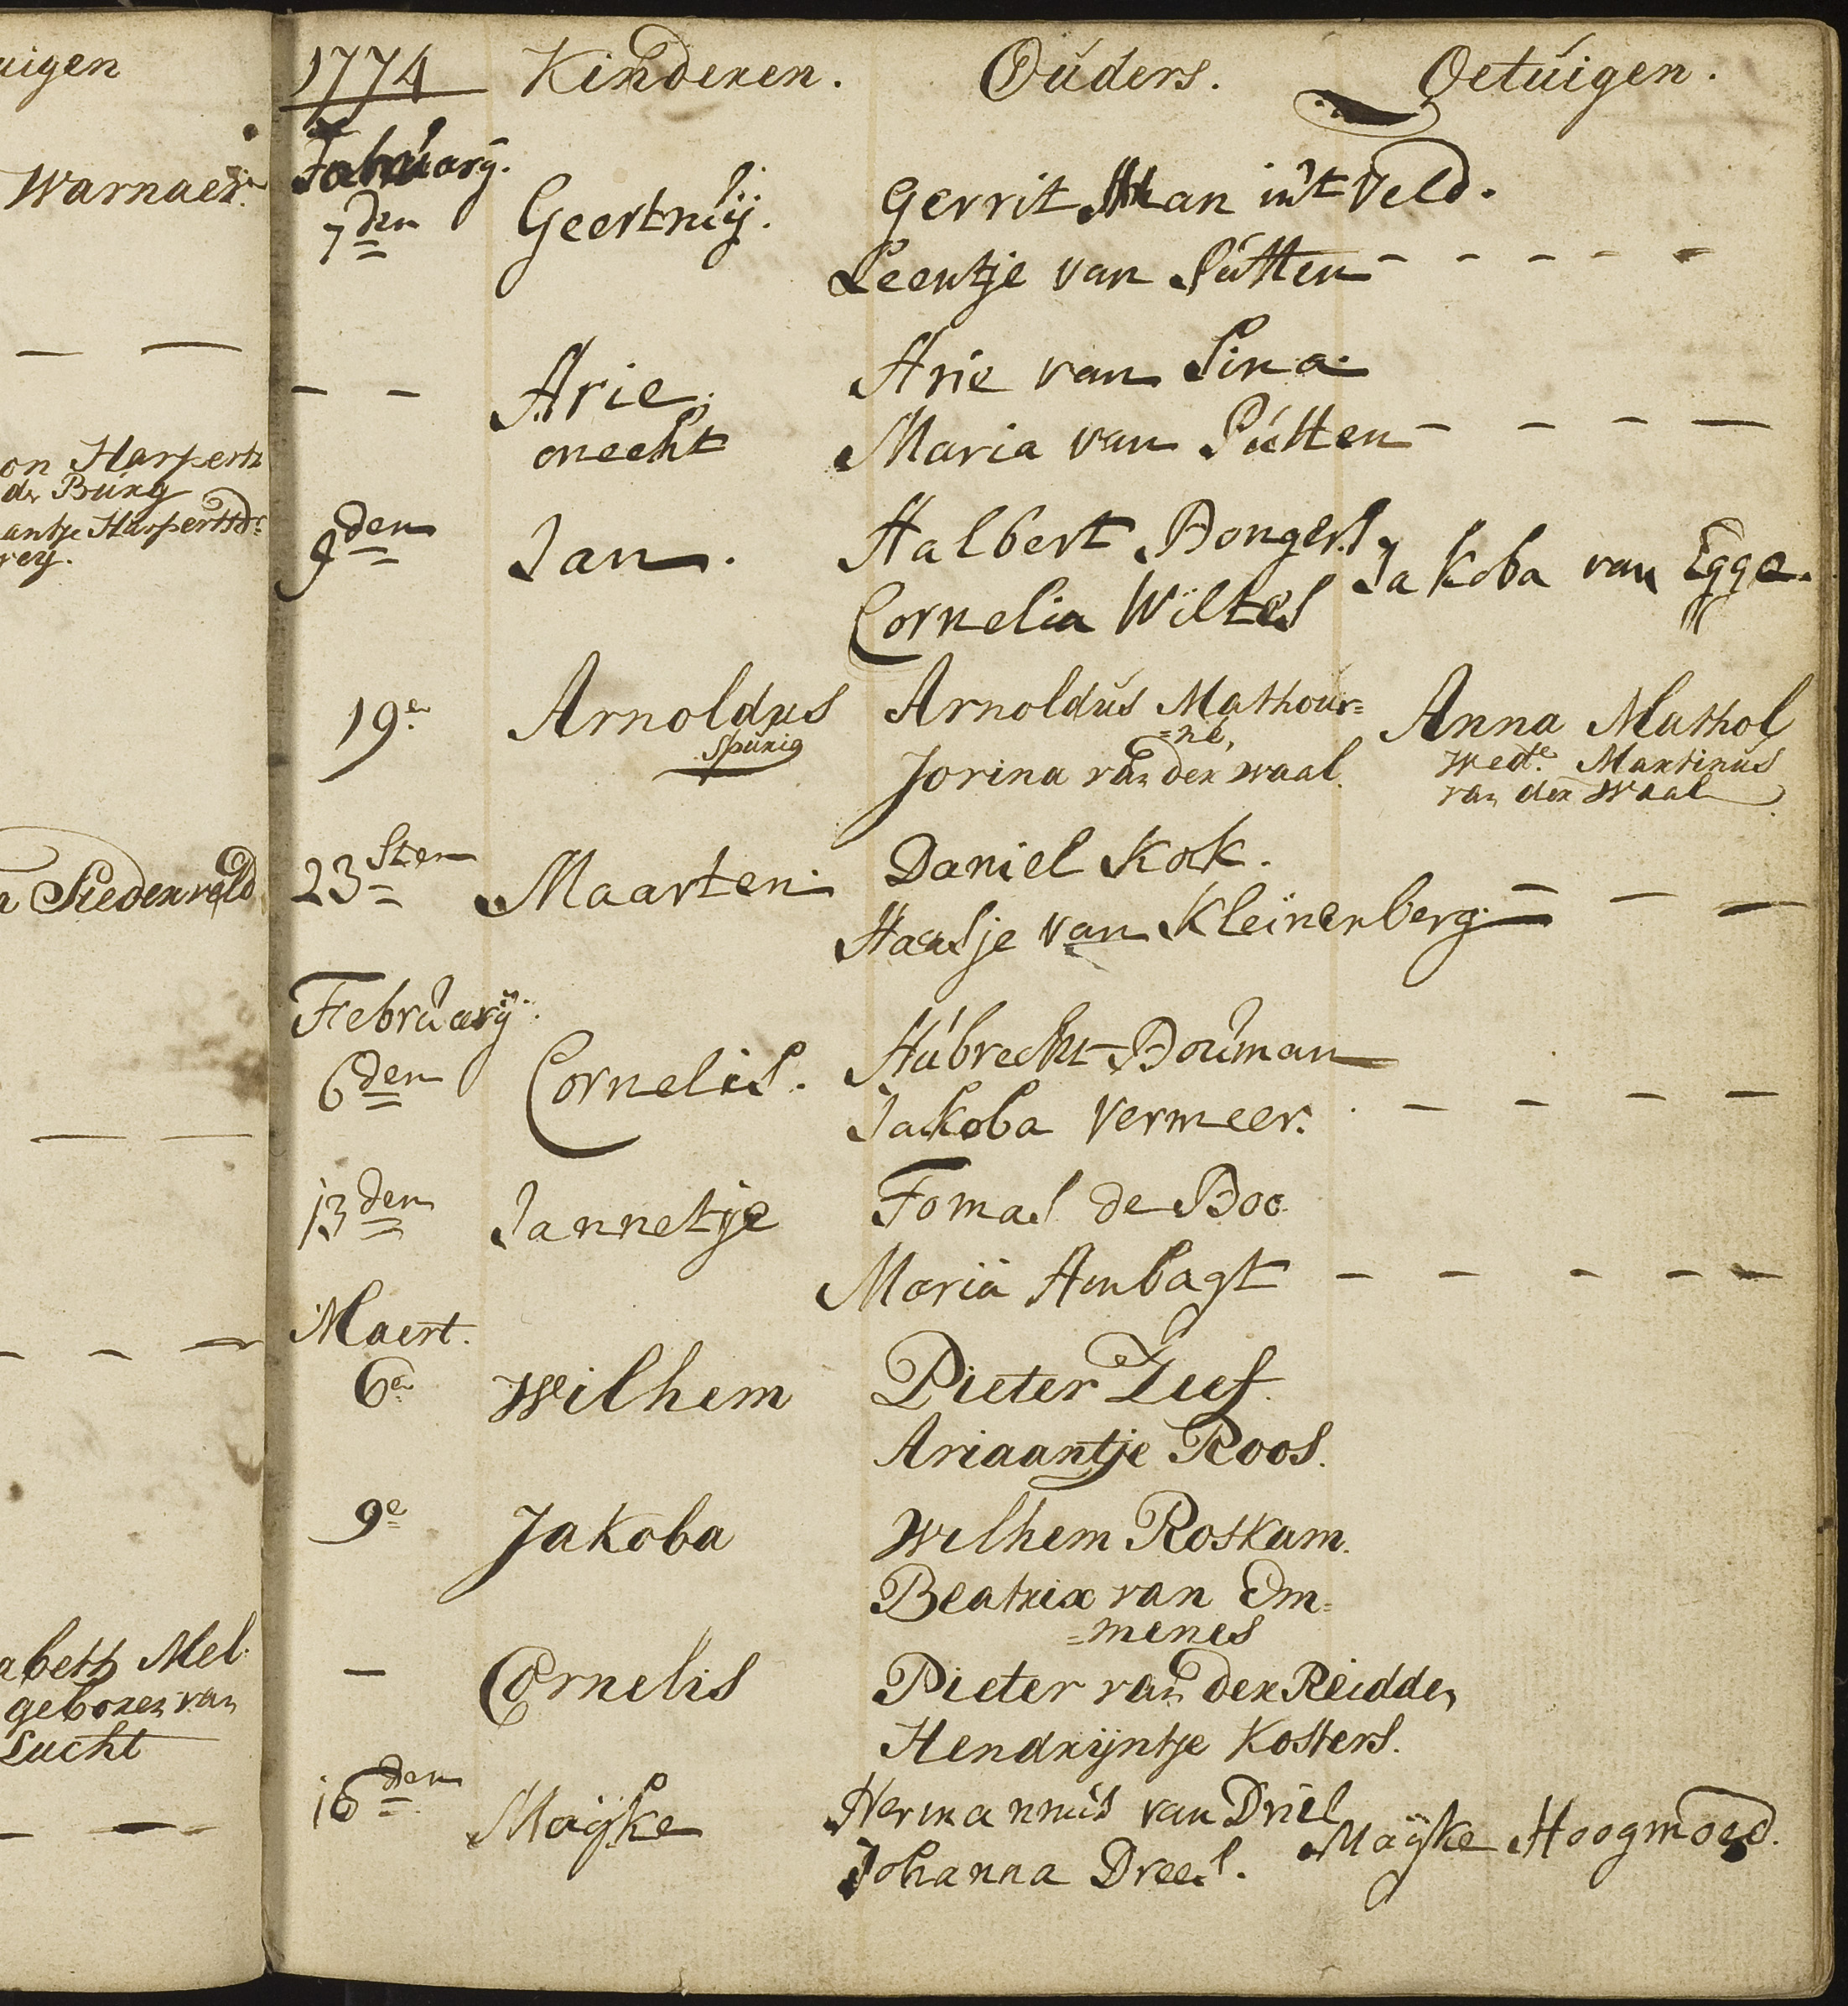 uigen
Warnaer.
on Harperts
dr Burg
antje Harpertsdr
rey.
Siedenveld
abeth Mel
geboren van
Lucht
1774 Kinderen. Ouders. Getuigen.
February.
7den Geertruij. Gerrit Man in't Veld.
Leentje van Putten - - - - -
- - Arie. Arie van Pina.
onecht Maria van Putten - - - -
9den Jan. Halbert Bongers Jakoba van Egge.
Cornelia Wiltes
19e Arnoldus Arnoldus Mathour= Anna Mathol
Spurig =né, wede. Martinus
Jorina van der waal. van der Waal
23sten Maarten. Daniel Kok.
Haasje van Kleinenberg. - - -
February.
6den Cornelis. Hubrecht Bouman
Jakoba Vermeer. - - - -
13den Jannetje Tomas de Boo
Maria Ambagt - - - - -
Maert.
6e Wilhem Pieter Zeef.
Ariaantje Roos.
9e Jakoba Wilhem Roskam.
Beatrix van Em=
=menes
- Cornelis Pieter van der Reidden
Hendrijntje Kosters.
16den Maijke Hermannus van Driel Maijke Hoogmoed.
Johanna Drees.